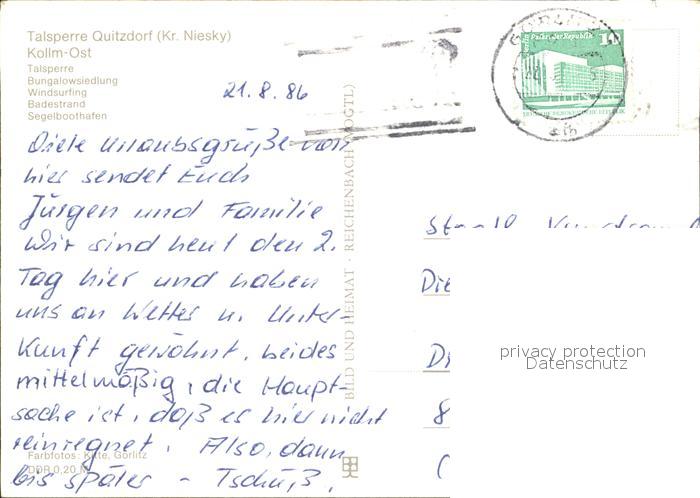 Talsperre Quitzdorf (Kr. Niesky)
Kollm-Ost
Talsperre
Bungalowsiedlung
Windsurfing
Badestrand
Segelboothafen
21.8.86
Diese Urlaubsgrüße von
hier sendet Euch
Jürgen und Familie
Wir sind heut den 2.
Tag hier und haben
uns an Wetter u. Unter-
kunft gewöhnt, beides
mittelmäßig, die Haupt-
sache ist, daß es hier nicht
reinregnet. Also, dann
bis später - Tschüß,
Farbfotos: Görlitz
DDR 0,20 M
BILD UND HEIMAT · REICHENBACH (VOGTL)
Berlin, Palast der Republik
10
DEUTSCHE DEMOKRATISCHE REPUBLIK
Die
privacy protection
Datenschutz